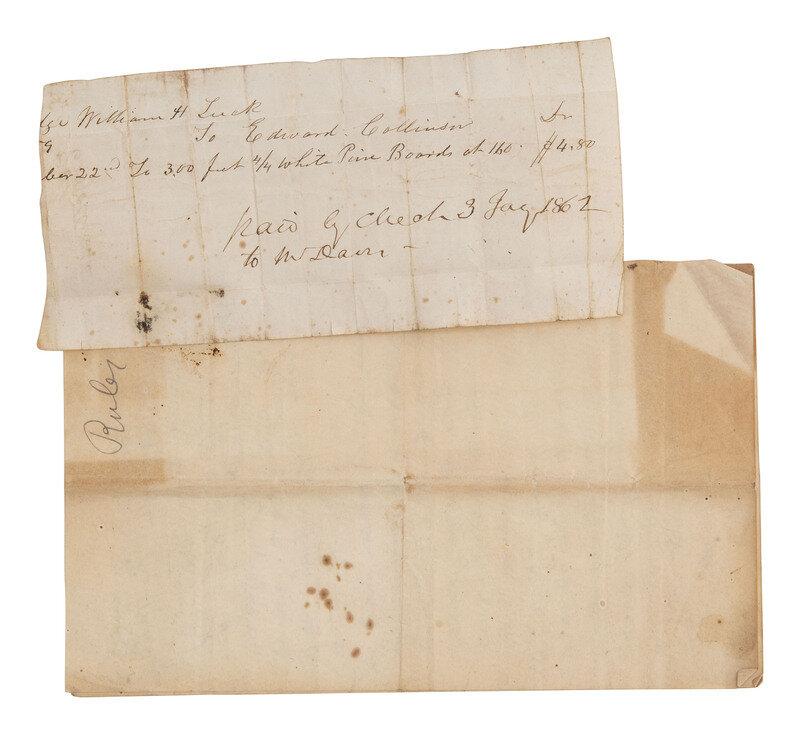 dge William H Tuck
To Edward. Collinson Dr
9
ber 22nd To 300 feet 4/4 White Pine Boards at 160. $4.80
paid by check 3 Jay 1862
to Mr
Rules